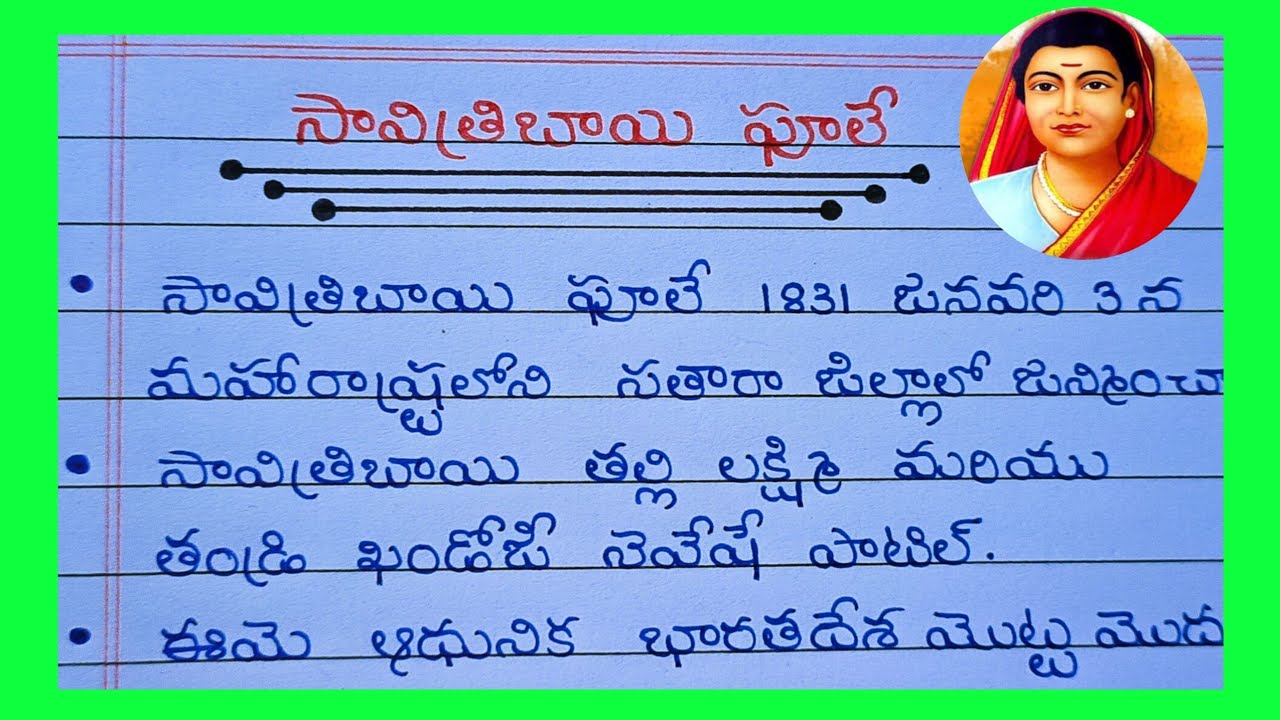 సావిత్రిబాయి ఫూలే
• సావిత్రిబాయి ఫూలే 1831 జనవరి 3 న
మహారాష్ట్రలోని సతారా జిల్లాలో జన్మించా
• సావిత్రిబాయి తల్లి లక్ష్మి మరియు
తండ్రి ఖండోజీ నెవేషే పాటిల్.
• ఈమె ఆధునిక భారతదేశ మొట్టమొద